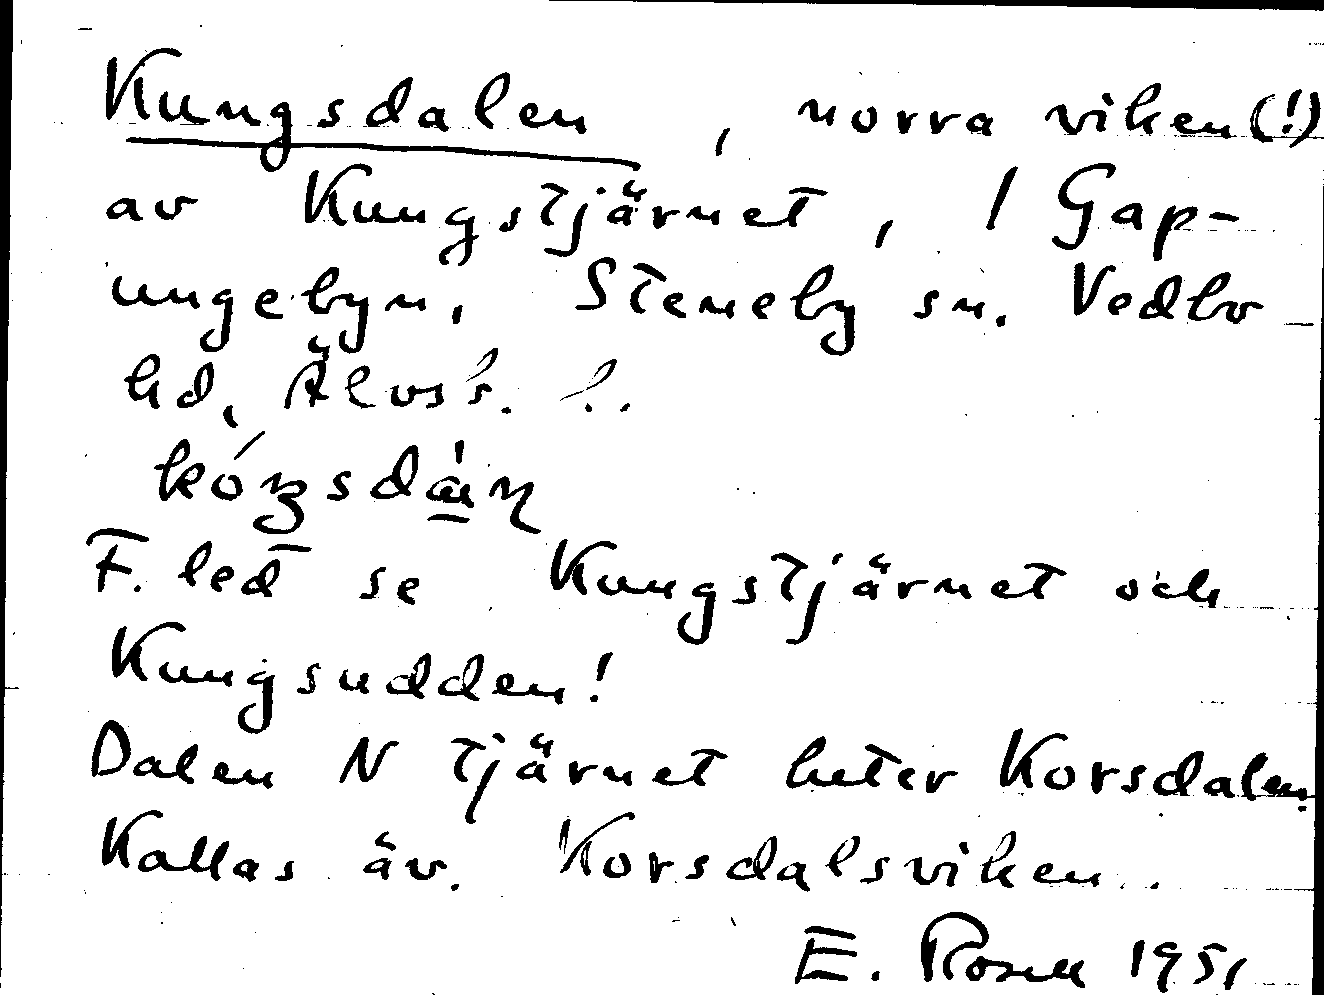 Kungsdalen, norra viken(!)
av Kungstjärnet, i Gap-
ungebyn, Steneby sn. Vedbo
hd, Älvsb. l.
F. led se Kungstjärnet och
Kungsudden!
Dalen N tjärnet heter Korsdalen.
Kallas äv. Korsdalsviken.
E. Rosell 1951